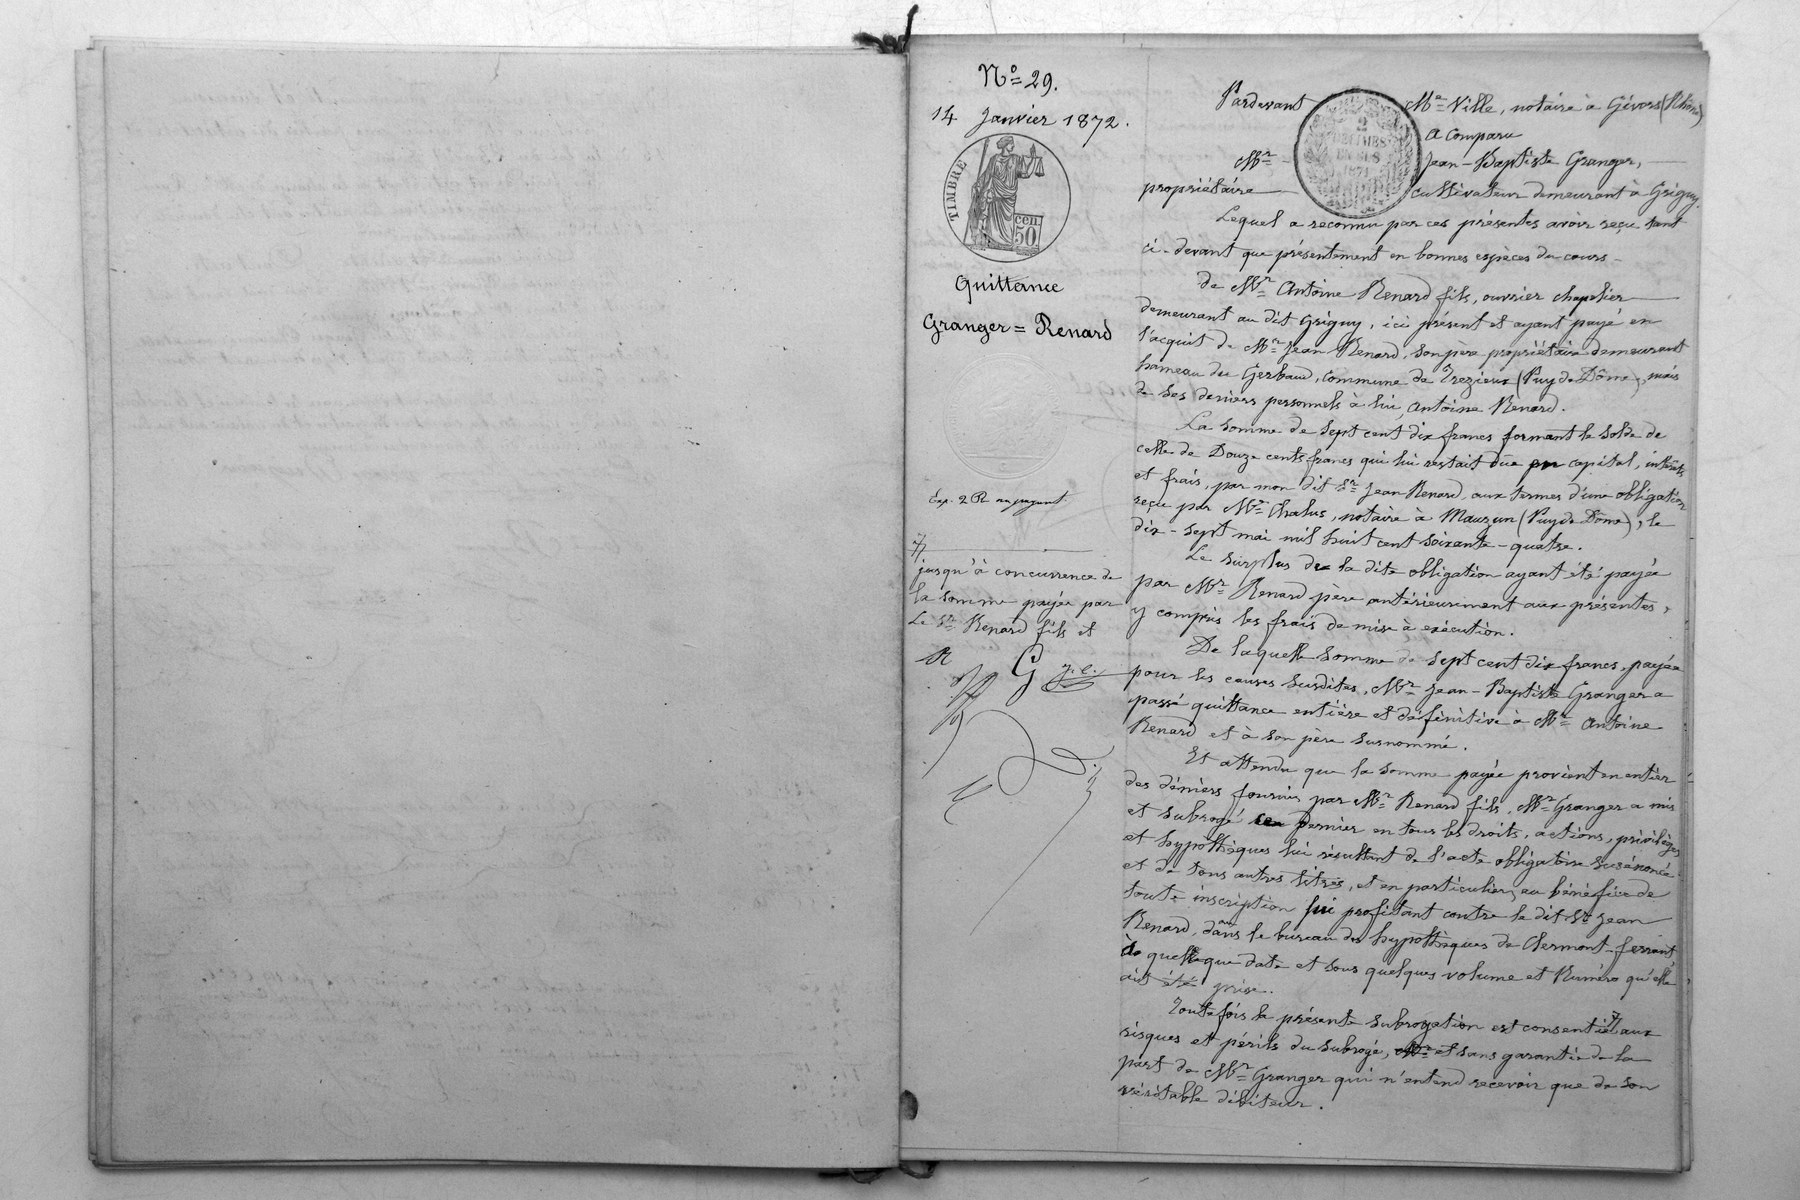 N° 29.
14 Janvier 1872.
TIMBRE
50 cen
Quittance
Granger = Renard
jusqu'à concurrence de
la somme payée par
Le Sr Renard fils et
R G J.C.
Pardevant Me Ville, notaire à Givors (Rhône)
2
DÉCIMES
EN SUS
1871
A comparu
Mr Jean-Baptiste Granger,
propriétaire cultivateur demeurant à Grigny.
Lequel a reconnu par ces présentes avoir reçu tant
ci-devant que présentement en bonnes espèces du cours
de Mr Antoine Renard fils, ouvrier chapelier
demeurant au dit Grigny, ici présent et ayant payé en
l'acquit de Mr Jean Renard, son père propriétaire demeurant
hameau du Gerbaud, commune de Trezieux (Puy de Dôme), mais
de ses deniers personnels à lui, Antoine Renard.
La somme de sept cent dix francs formant le solde de
celle de Douze cents francs qui lui restait due en capital, intérêts
et frais, par mon dit Sr Jean Renard, aux termes d'une obligation
reçu par Me Chalus, notaire à Mauzun (Puy de Dôme), le
dix-sept mai mil huit cent soixante-quatre.
Le surplus de la dite obligation ayant été payée
par Mr Renard père antérieurement aux présentes,
y compris les frais de mise à exécution.
De laquelle somme de sept cent dix francs, payée
pour les causes susdites, Mr Jean-Baptiste Granger a
passé quittance entière et définitive à Mr Antoine
Renard et à son père susnommé.
Et attendu que la somme payée provient en entier
des déniers fournis par Mr Renard fils, Mr Granger a mis
et subrogé ce dernier en tous les droits, actions, privilèges
et hypothèques lui résultant de l'acte obligatoire susénoncé
et de tous autres titres, et en particulier, au bénéfice de
toute inscription lui profitant contre le dit Sr Jean
Renard, dans le bureau des hypothèques de Clermont-ferrant
à quelle que date et sous quelques volume et Numéro qu'elle
ait été prise.
Toutefois la présente subrogation est consentie aux
risques et périls du subrogé, et sans garantie de la
part de Mr Granger qui n'entend recevoir que de son
véritable débiteur.